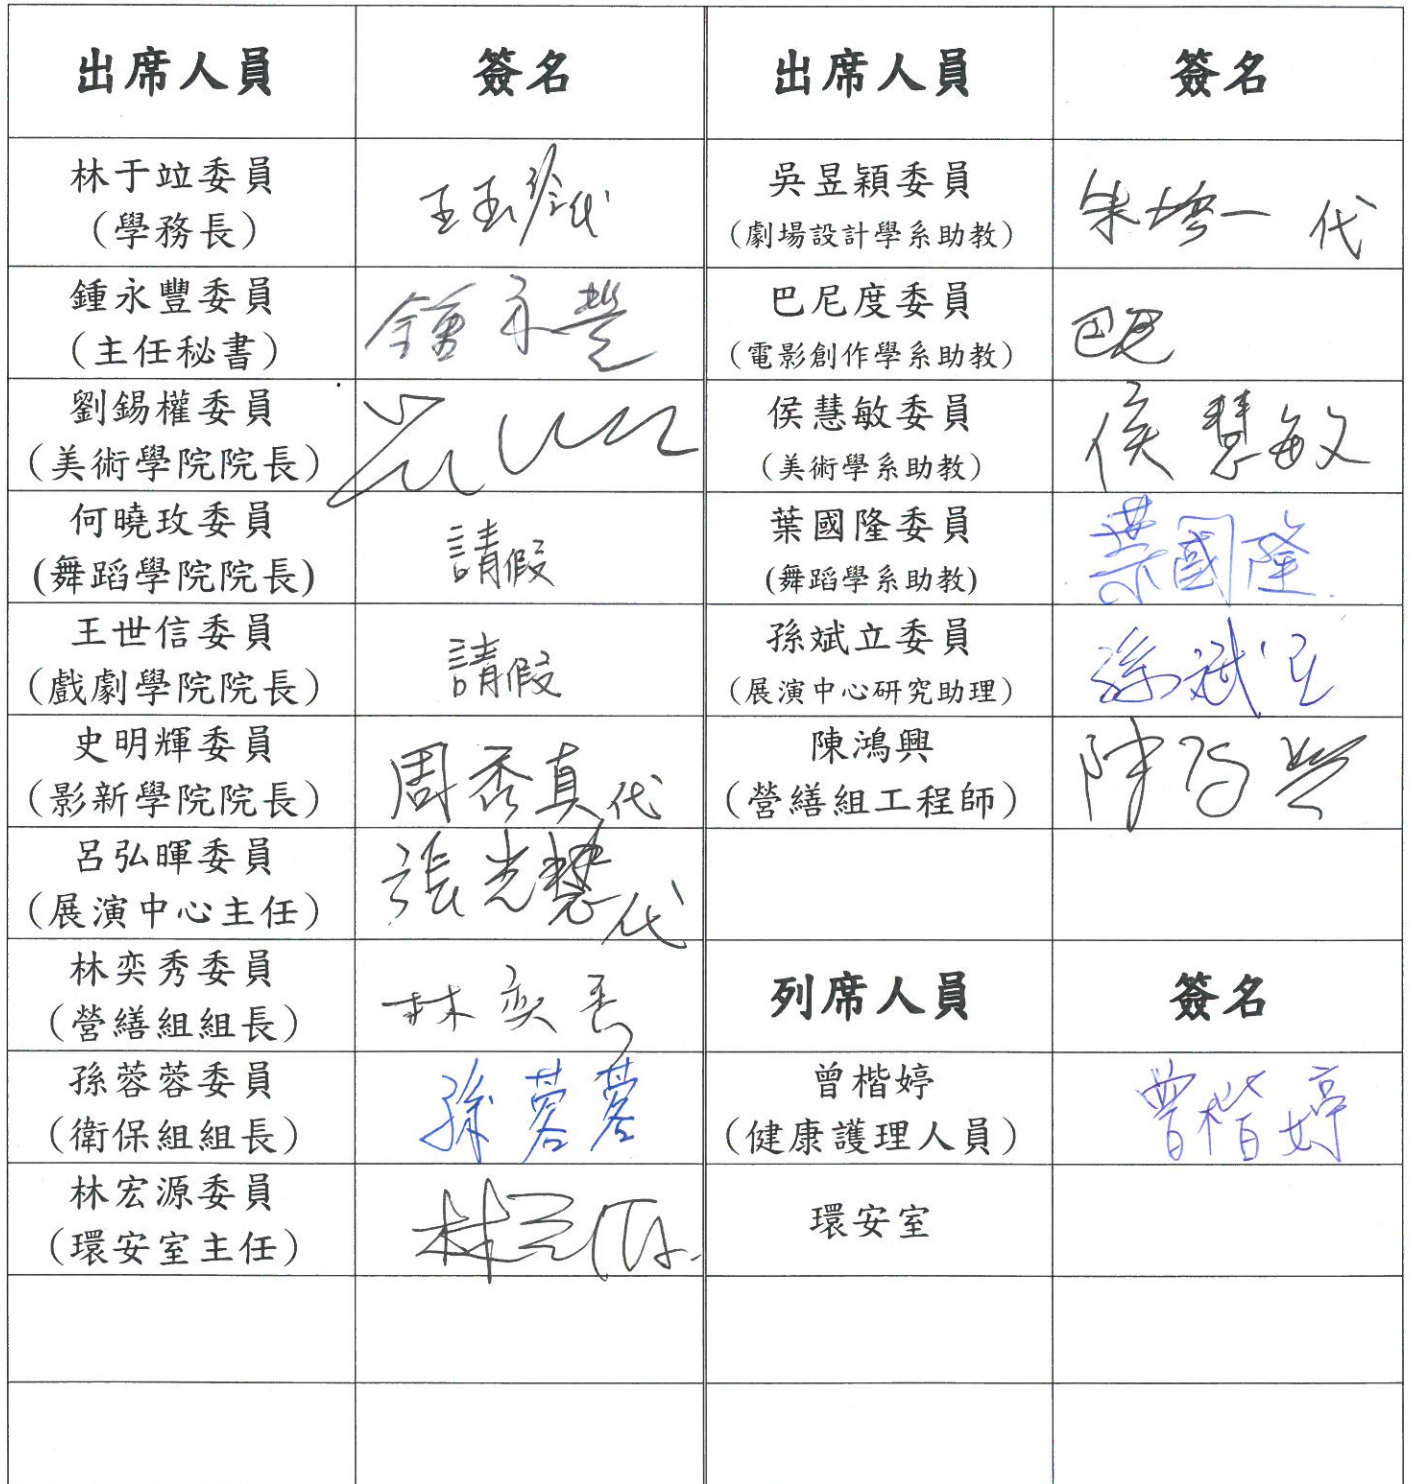 出席人員 簽名 出席人員 簽名
林于竝委員
(學務長)
代
吳昱穎委員
(劇場設計學系助教)
代
鍾永豐委員
(主任秘書)
鍾永豐
巴尼度委員
(電影創作學系助教)
劉錫權委員
(美術學院院長)
侯慧敏委員
(美術學系助教)
侯慧敏
何曉玫委員
(舞蹈學院院長)
請假
葉國隆委員
(舞蹈學系助教)
葉國隆
王世信委員
(戲劇學院院長)
請假
孫斌立委員
(展演中心研究助理)
孫斌立
史明輝委員
(影新學院院長)
周秀真代
陳鴻興
(營繕組工程師)
陳鴻興
呂弘暉委員
(展演中心主任)
張光慧代
林奕秀委員
(營繕組組長)
林奕秀
列席人員 簽名
孫蓉蓉委員
(衛保組組長)
孫蓉蓉
曾楷婷
(健康護理人員)
曾楷婷
林宏源委員
(環安室主任)
林宏源
環安室